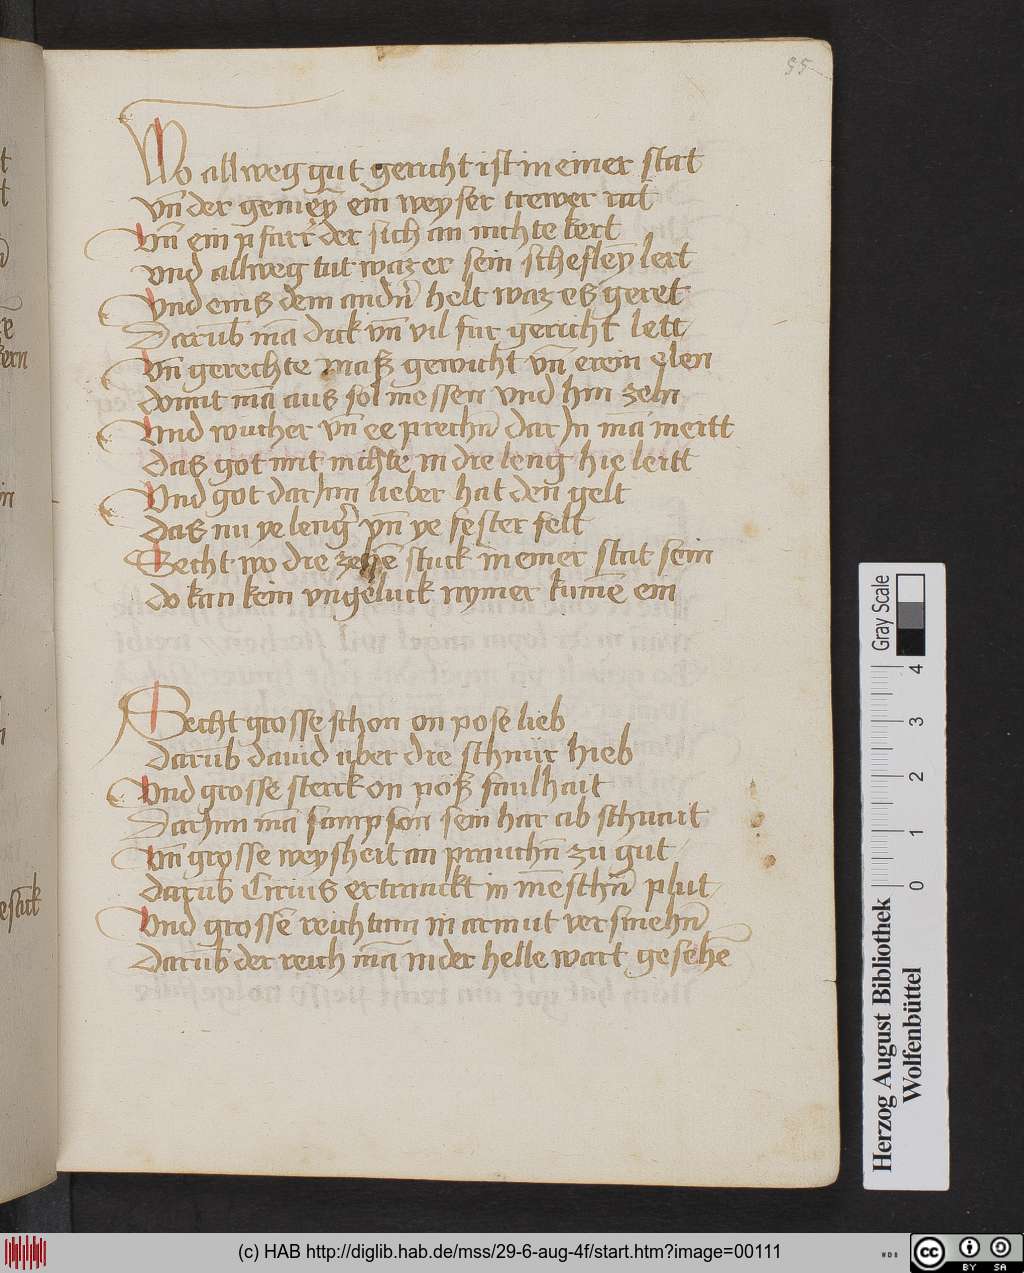 55
Wo allweg gut gericht ist in einer stat
vn̄ der gemeÿ ein weyser trewer rat
Vn̄ ein pfarr̄ der sich an nichte kert
vnd allweg tut waz er sein scheflēy lert
Vnd eins dem andn̄ helt waz es geret
Darūb mā dick vn̄ vil fur gericht lett
Vn̄ gerechte maß gewicht vn̄ elen
domit mā aus sol messen vnd hin zeln
Vnd wucher vn̄ ee prechn̄ darJn mā mertt
Das got mit nichte in die leng hie leitt
Vnd got darJnn lieber hat den gelt
das nu ye lenḡ vn̄ ye fester felt
Secht wo die stuck in einer stat sein
do kan kein vngeluck nymer kumē ein
Secht grosse schon on pose lieb
darūb dauid uber die schnur hieb
Vnd grosse sterck on poß faulhait
DarJnn mā sampson sein har ab schnait
Vn̄ grosse weysheit an prauchn̄ zu gut
darūb Cirius extranckt in mēschn̄ plut
Vnd grossē reichtum in armut versmehn̄
Darūb der reich mā in der helle wart gesehē
esack
Herzog August Bibliothek
Wolfenbüttel
Gray Scale
0 1 2 3 4
(c) HAB http://diglib.hab.de/mss/29-6-aug-4f/start.htm?image=00111
WDB
cc BY SA